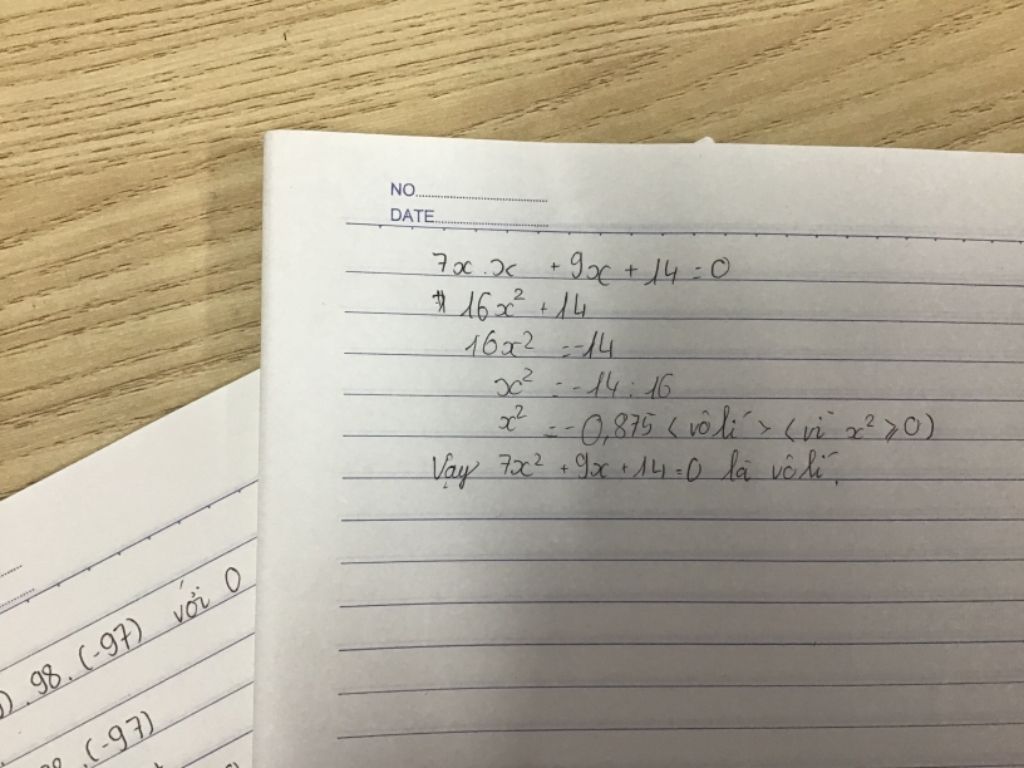 NO
DATE
7x.x + 9x + 14 = 0
16x² + 14
16x² = -14
x² = -14 : 16
x² = -0,875 < vô lí > < vì x² ⩾ 0)
Vạy 7x² + 9x + 14 = 0 là vô lí.
.98.(-97) với 0
.(-97)